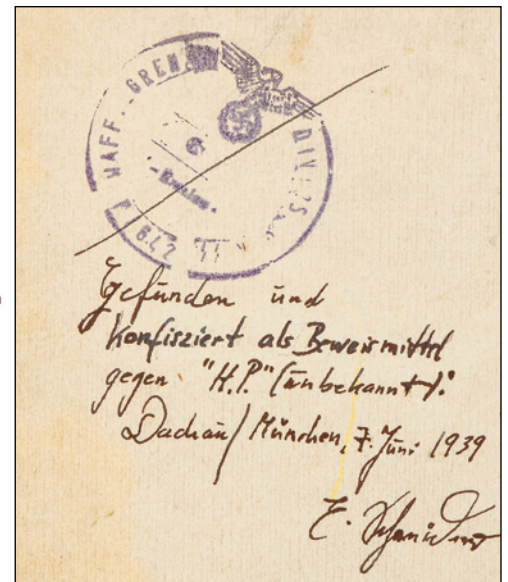 WAFF. GREN
DIVIS
6.42
Gefunden und
Konfisziert als Beweismittel
gegen "H.P." (unbekannt).
Dachau/München, 7. Juni 1939